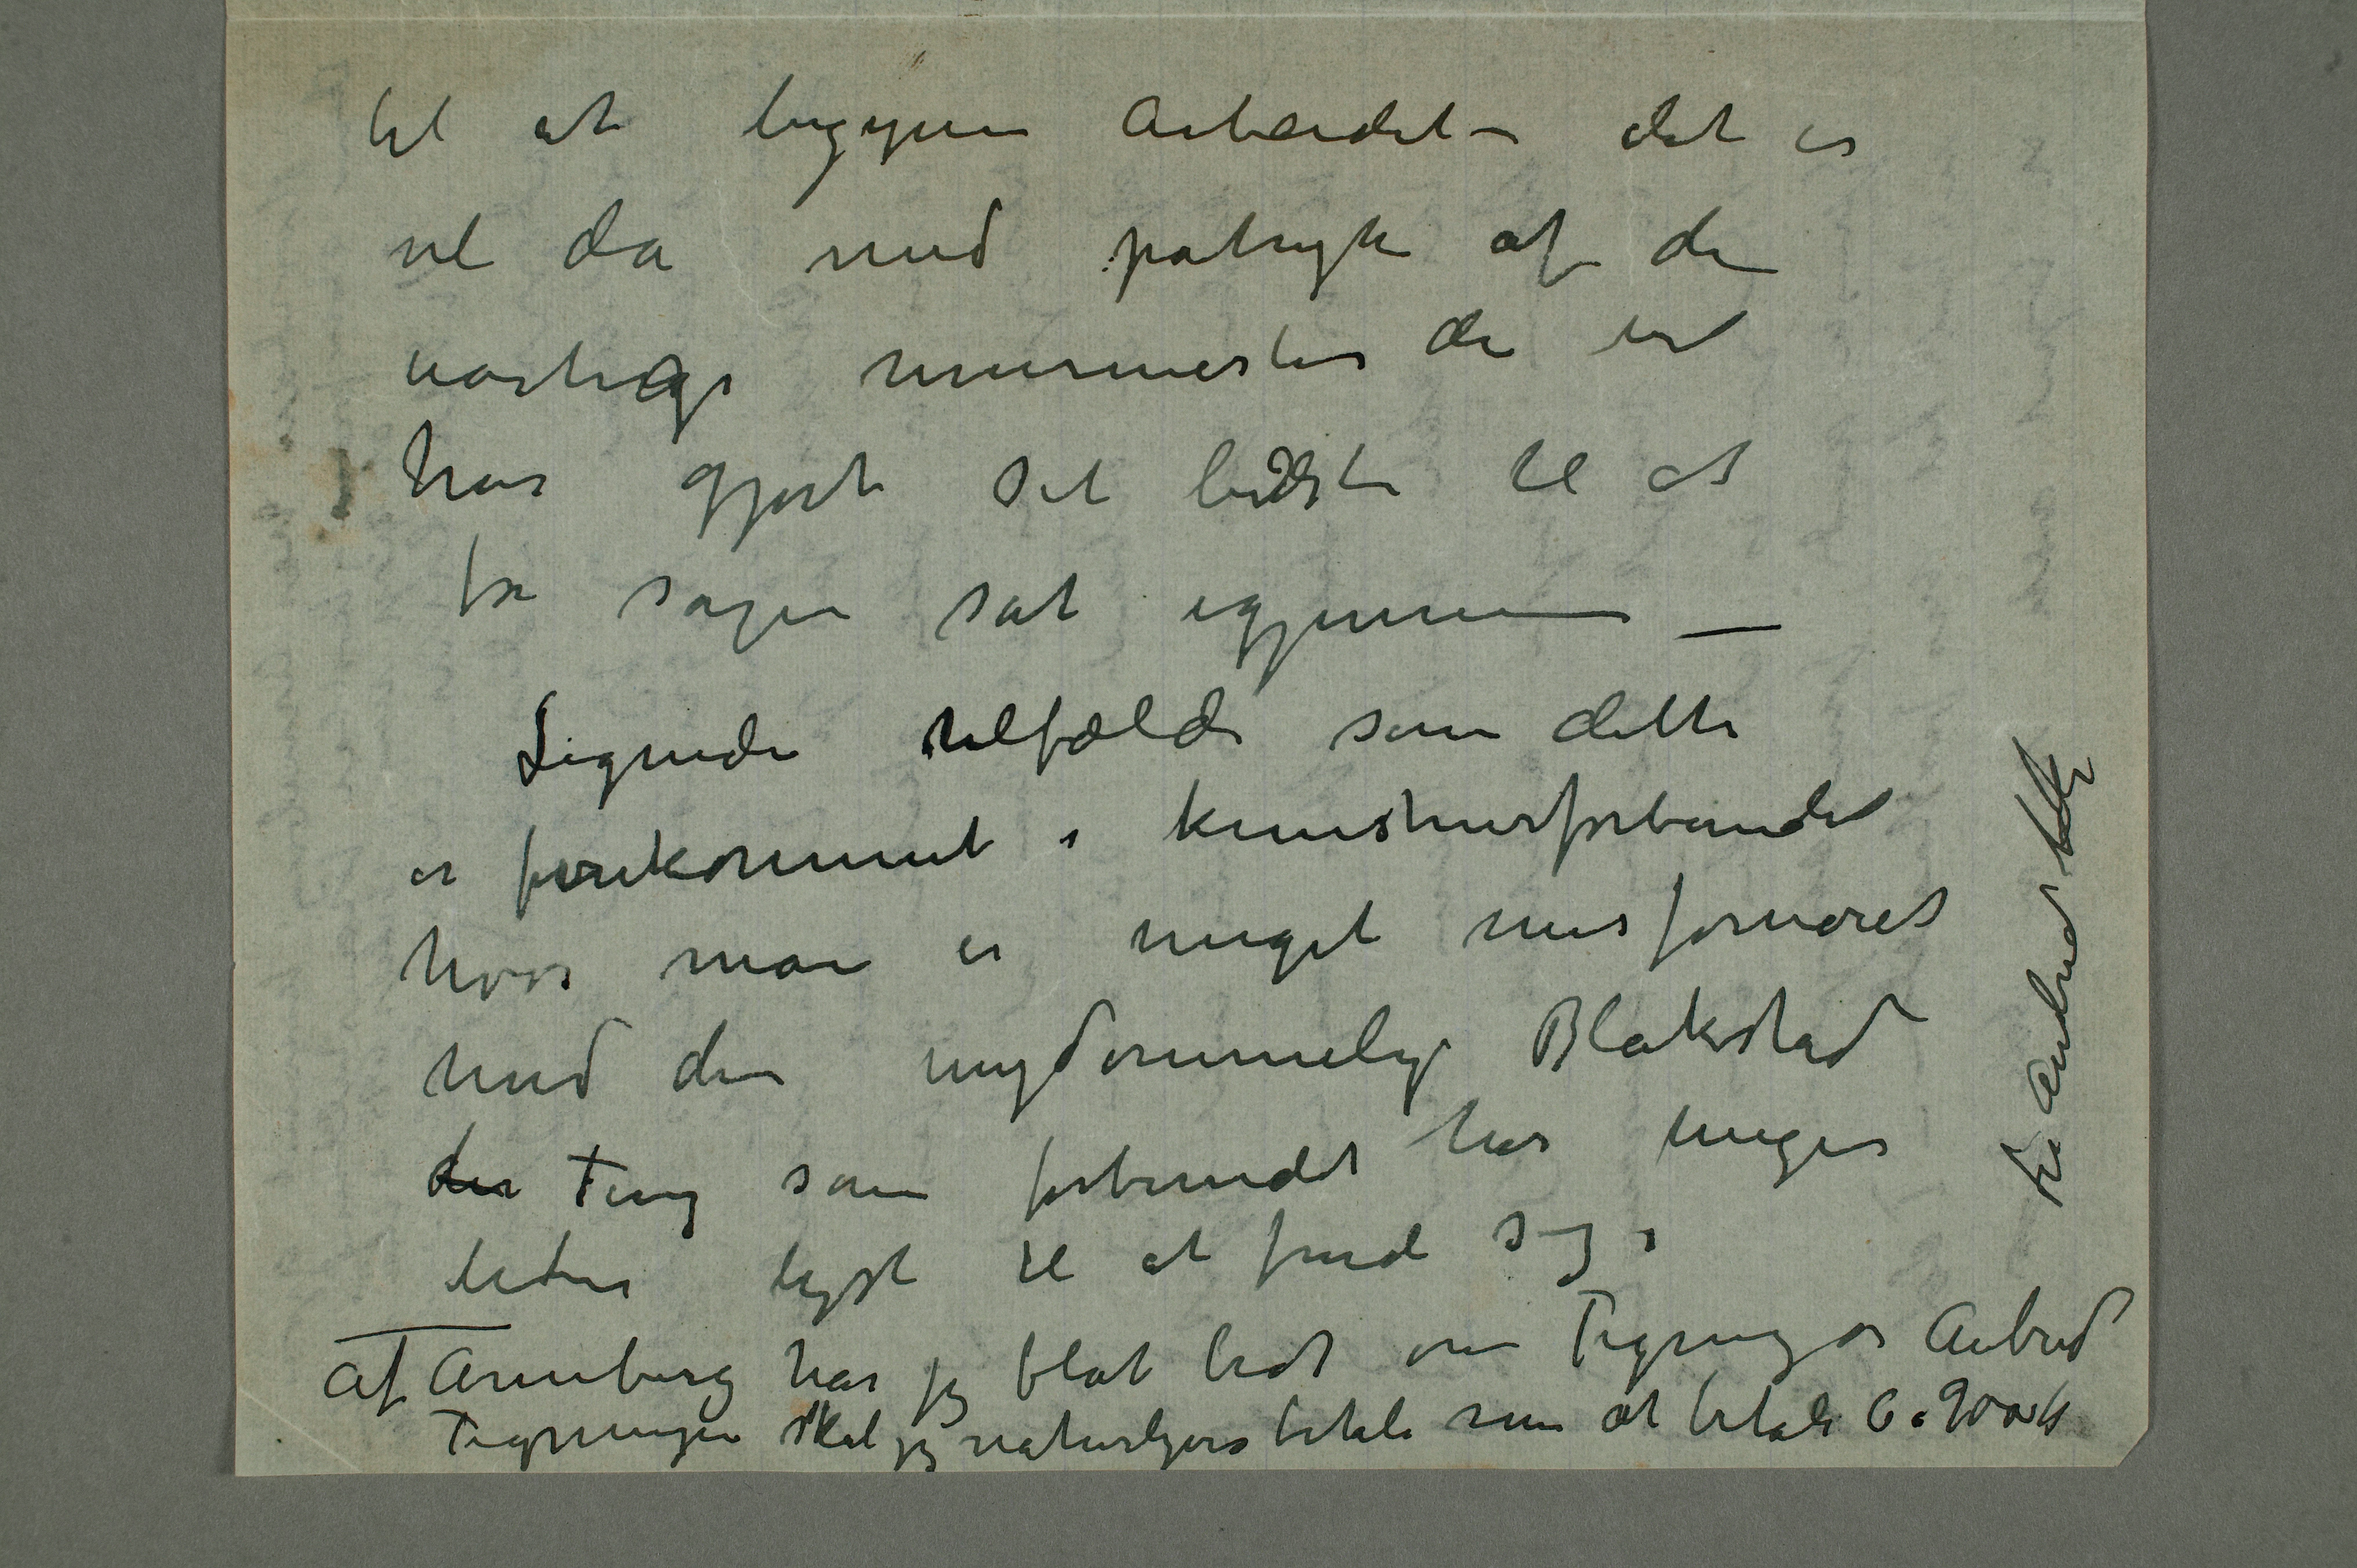 til at begynne Arbeidet – det er
vel da med påtryk af den
uærlige murmester der vel
har gjort sit bedste til at
få sagen sat igjennem –
Lignende tilfælde som dette
er forekommet i kunstnerforbundet
hvor man er meget misfornøiet
med den eiendommelige Blakstad
der Ting som forbundet har meget
liten lyst til at finde sig i
Af Arneberg har jeg blot bedt om Tegning og Anbud
Tegningen skal jeg naturligvis betale men at betale 6 a 900 kr
for Anbud